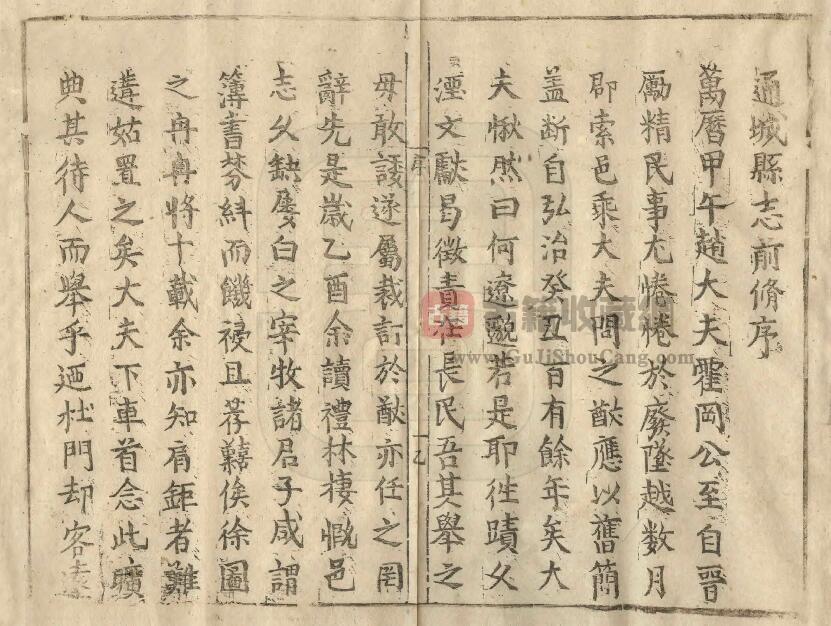 通城縣志前脩序
萬曆甲午趙大夫霍岡公至自晉
勵精民事尤惓惓於廢墜越數月
即索邑乘大夫問之猷應以舊簡
盖断自弘治癸丑百有餘年矣大
夫愀然曰何遼邈若是耶徃蹟乆
湮文獻曷徵責在長民吾其舉之
序
一乙
毋敢諼遂屬裁訂於猷亦任之罔
辭先是歲乙酉余讀禮林棲慨邑
志乆缺屡白之宰牧諸君子咸謂
簿書棼糾而饑祲且荐囏俟徐圖
之冉冉將十載余亦知肩鉅者難
遘姑置之矣大夫下車首念此曠
典其待人而舉乎廼杜門却客遠
古籍收藏網
www.GuJiShouCang.com